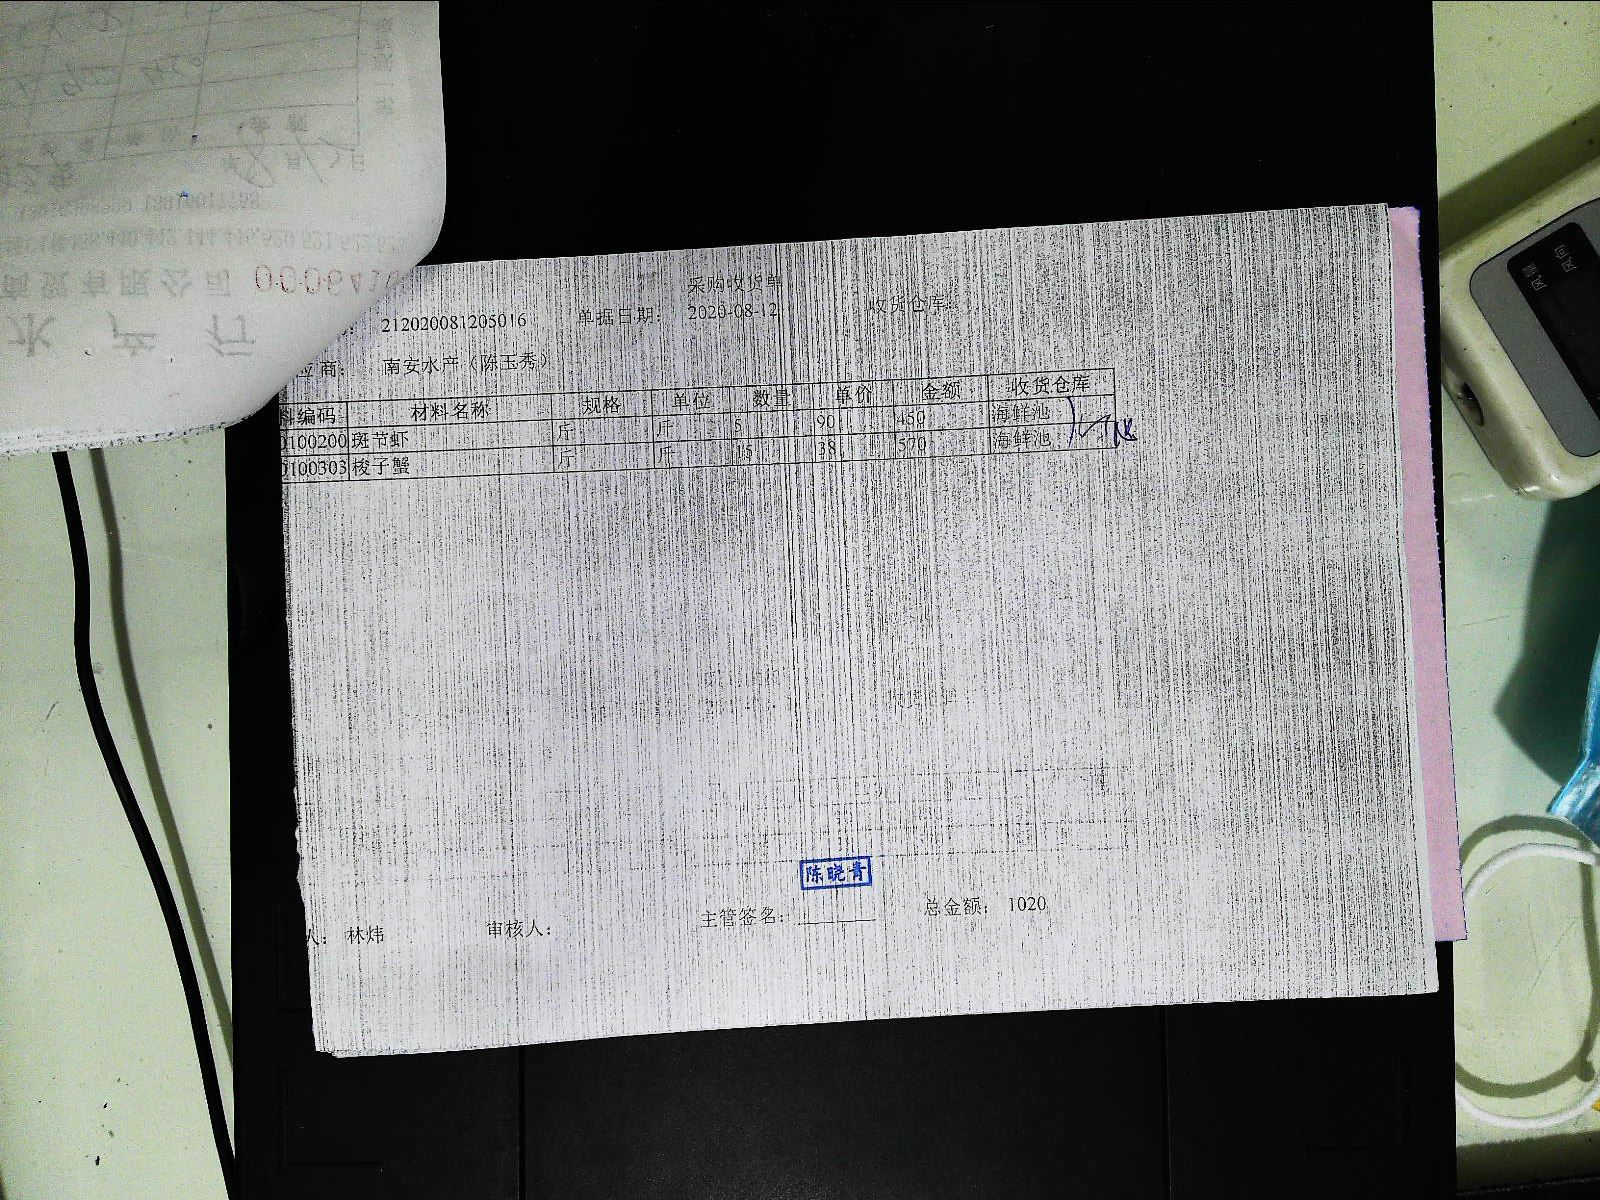 商贸有限公司 000641
水产行
采购收货单
212020081205016 单据日期: 2020-08-12 收货仓库:
应商: 南安水产(陈玉秀)
料编码 材料名称 规格 单位 数量 单价 金额 收货仓库
0100200 斑节虾 斤 斤 5 90 450 海鲜池
0100303 梭子蟹 斤 斤 15 38 570 海鲜池
陈晓青
人: 林炜 审核人: 主管签名: 总金额: 1020
风量
风向